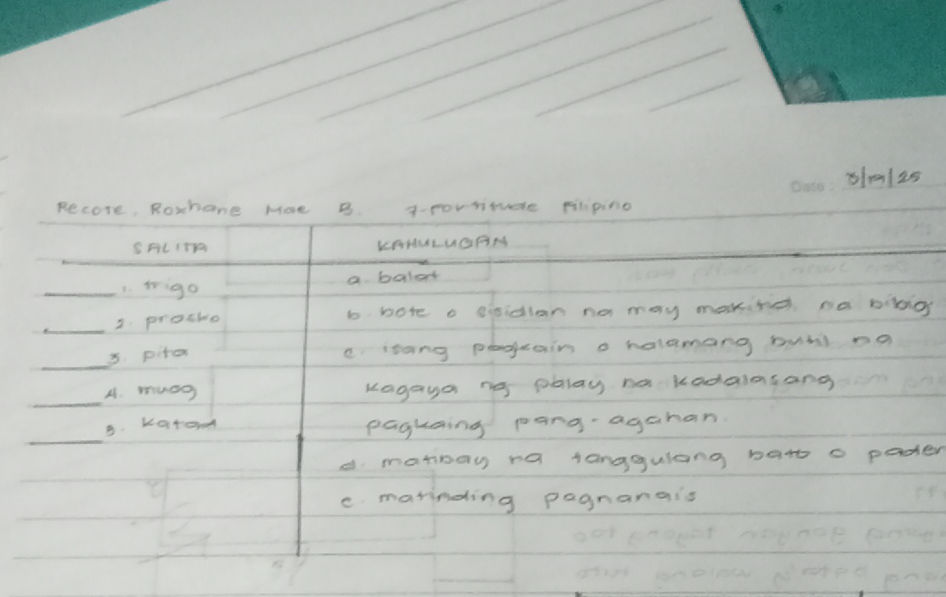 Date: 8/19/25
Recote, Roxhane Mae B. 7-Fortitude Filipino
SALITA KAHULUGAN
1. trigo a. balat
2. prasko b. bote o sisidlan na may makitid na bibig
3. pita c. isang pagkain o halamang butil na
4. muog kagaya ng palay na kadalasang
5. katad pagkaing pang-agahan.
d. matibay na tanggulang bato o pader
e. matinding pagnanais